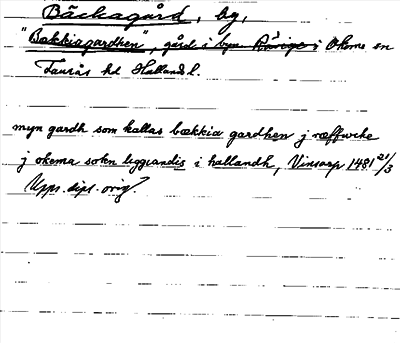 Bäckagård, by,
"Bækkiagardhen", gård i byn Rävige i Okome sn
Faurås hd Hallands l.
myn gardh som kallas bækkia gardhen j ræffwike
j okema sokn liggiandis i hallandh, Vinsarp 1481 21/3
Upps. dipl. orig.